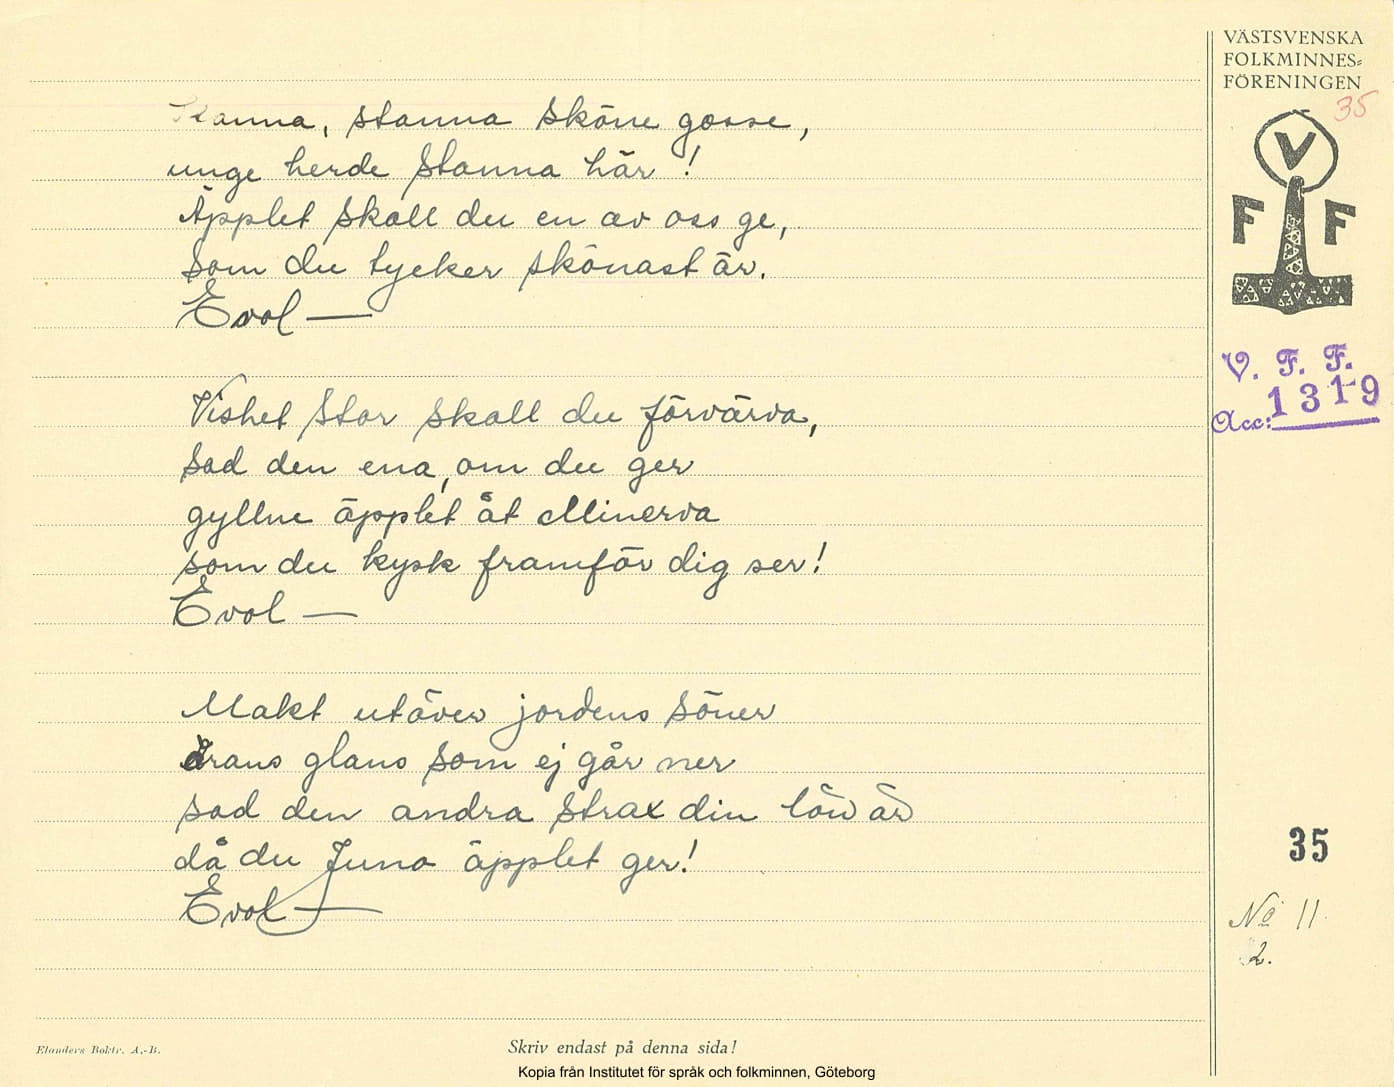 Stanna, stanna sköne gosse,
unge herde stanna här!
Äpplet skall du en av oss ge,
som du tycker skönast är.
Evol —
Vishet stor skall du förvärva,
sad den ena, om du ger
gyllne äpplet åt Minerva
som du kysk framför dig ser!
Evol —
Makt utöver jordens söner
ärans glans som ej går ner
sad den andra strax din lön är
då du Juno äpplet ger!
Evol —
VÄSTSVENSKA
FOLKMINNES-
FÖRENINGEN
35
V
F F
V. F. F.
Acc: 1319
35
No 11
2.
Elanders Boktr. A.-B.
Skriv endast på denna sida!
Kopia från Institutet för språk och folkminnen, Göteborg